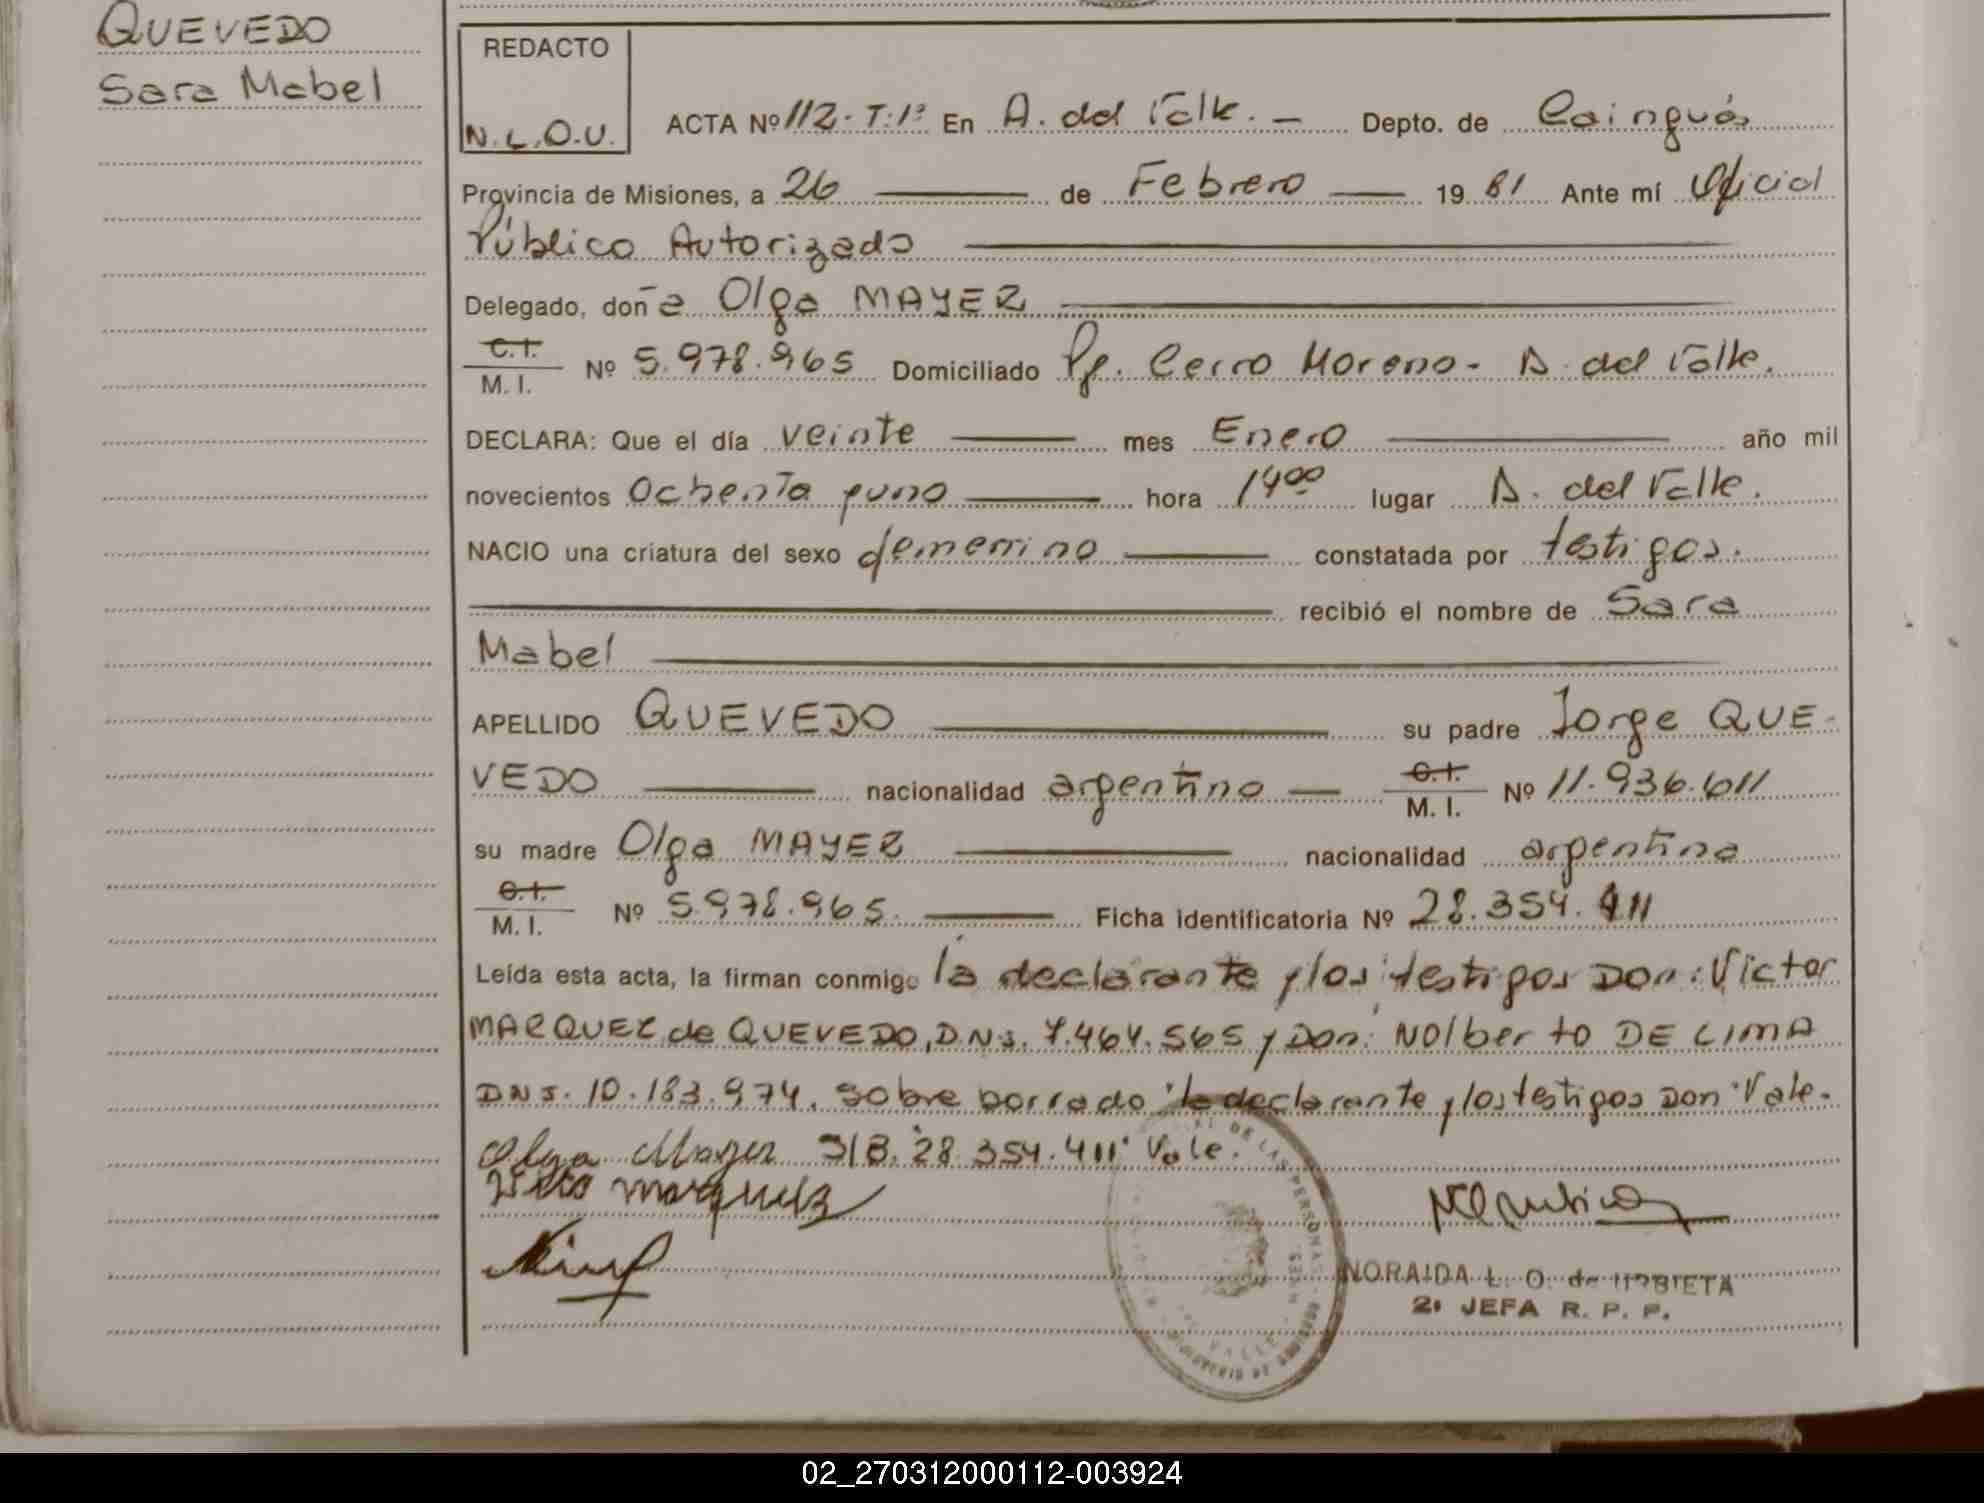 QUEVEDO
Sara Mabel
REDACTO
N.L.O.U.
ACTA Nº 112-T:1º En A. del Valle. — Depto. de Cainguás
Provincia de Misiones, a 26 de Febrero 19 81 Ante mí Oficial
Público Autorizado
Delegado, doña Olga MAYER
C.I. / M.I. Nº 5.978.965 Domiciliado Pje. Cerro Moreno - A. del Valle.
DECLARA: Que el día veinte mes Enero año mil
novecientos ochenta y uno hora 14⁰⁰ lugar A. del Valle.
NACIO una criatura del sexo femenino constatada por testigos.
recibió el nombre de Sara
Mabel
APELLIDO QUEVEDO su padre Jorge QUE-
VEDO nacionalidad argentino — C.I. / M.I. Nº 11.936.611
su madre Olga MAYER nacionalidad argentina
C.I. / M.I. Nº 5.978.965. Ficha identificatoria Nº 28.354.411
Leída esta acta, la firman conmigo la declarante y los testigos Don: Victor
MARQUEZ de QUEVEDO, DNI. 7.464.565 y Don: Nolberto DE LIMA
DNI. 10.183.974. Sobre borrado "la declarante y los testigos Don" Vale.
Olga Mayer S/B. "28.354.411" Vale.
Marquez
NORAIDA L. O. de URBIETA
2º JEFA R. P. P.
DE LAS PERSONAS
VALLE
02_270312000112-003924